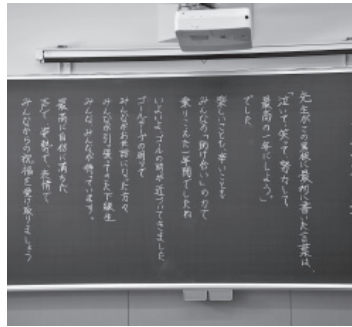 先生がこの黒板に最初に書いた言葉は、
「泣いて、笑って、努力して
最高の一年にしよう。」
でした。
楽しいことも、辛いことも
みんなの「助け合い」の力で
乗りこえた一年間でしたね
いよいよゴールの時が近づいてきました
ゴールテープの向こうで
みんながお世話になった方々
みんなが引っ張ってきた下級生
みんなが待っています。
最高に自信に満ちた
姿勢で、表情で
みんなからの祝福を受け取りましょう